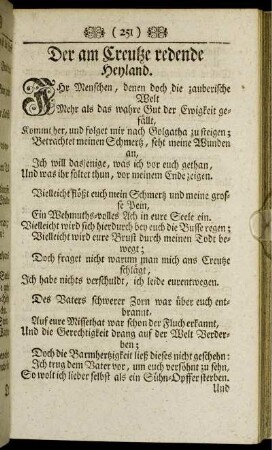 ( 251 )
Der am Creutze redende
Heyland.
IHr Menschen, denen doch die zauberische
Welt
Mehr als das wahre Gut der Ewigkeit ge-
fällt,
Kommt her, und folget mir nach Golgatha zu steigen;
Betrachtet meinen Schmertz, seht meine Wunden
an,
Ich will dasjenige, was ich vor euch gethan,
Und was ihr soltet thun, vor meinem Ende zeigen.
Vielleicht flößt euch mein Schmertz und meine gros-
se Pein,
Ein Wehmuths-volles Ach in eure Seele ein.
Vielleicht wird sich hierdurch bey euch die Busse regen;
Vielleicht wird eure Brust durch meinen Todt be-
wegt;
Doch fraget nicht warum man mich ans Creutze
schlägt,
Ich habe nichts verschuldt, ich leide eurentwegen.
Des Vaters schwerer Zorn war über euch ent-
brannt,
Auf eure Missethat war schon der Fluch erkannt,
Und die Gerechtigkeit drang auf der Welt Verder-
ben;
Doch die Barmhertzigkeit ließ dieses nicht geschehn:
Ich trug dem Vater vor, um euch versöhnt zu sehn,
So wolt ich lieber selbst als ein Sühn-Opffer sterben.
Und